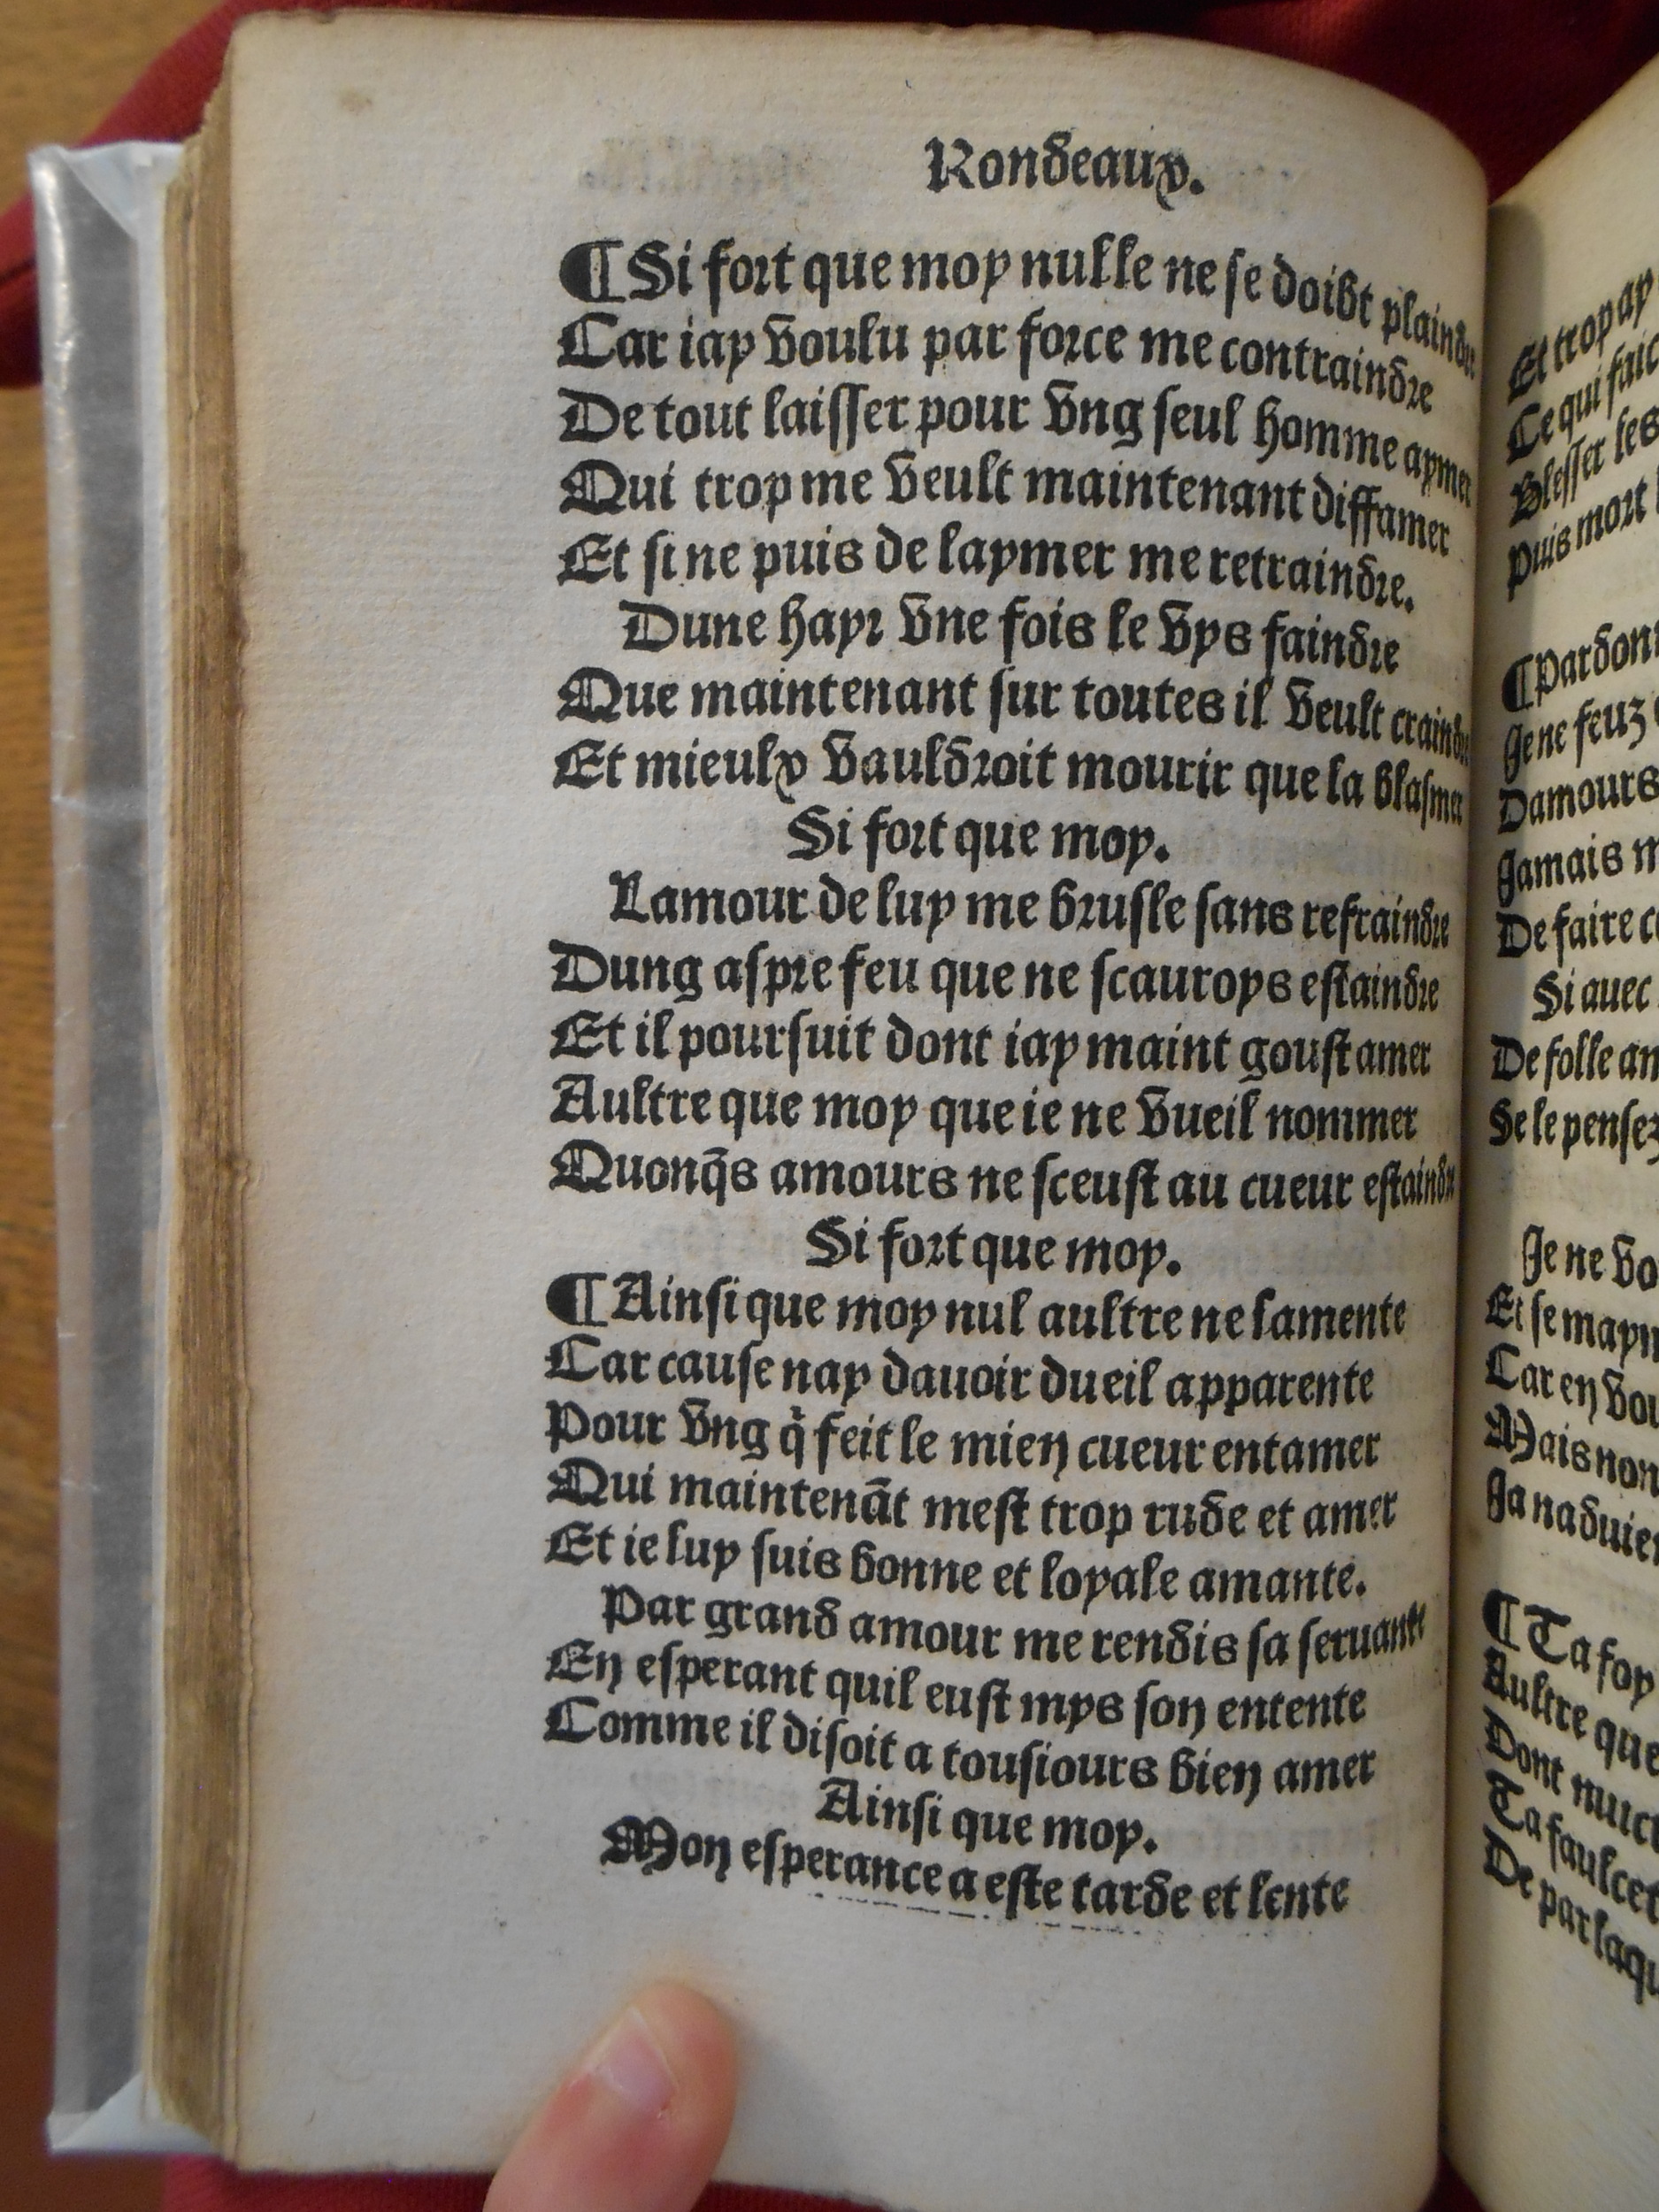 Rondeaux.
¶ Si fort que moy nulle ne se doibt plaindre
Car iay voulu par force me contraindre
De tout laisser pour vng seul homme aymer
Qui trop me veult maintenant diffamer
Et si ne puis de laymer me retraindre.
Dune hayr vne fois le vys faindre
Que maintenant sur toutes il veult craindre
Et mieulx vauldroit mourir que la blasmer
Si fort que moy.
Lamour de luy me brusle sans refraindre
Dung aspre feu que ne scauroys estaindre
Et il poursuit dont iay maint goust amer
Aultre que moy que ie ne vueil nommer
Quonq̃s amours ne sceust au cueur estaindre
Si fort que moy.
¶ Ainsi que moy nul aultre ne lamente
Car cause nay dauoir dueil apparente
Pour vng q̇ feit le mien cueur entamer
Qui maintenãt mest trop rude et amer
Et ie luy suis bonne et loyale amante.
Par grand amour me rendis sa seruante
En esperant quil eust mys son entente
Comme il disoit a tousiours bien amer
Ainsi que moy.
Mon esperance a este tarde et lente
Et trop ay
Ce qui faic
Blesser les
Puis mort
¶ Pardon
Je ne feuz
Damours
Jamais
De faire
Si auec
De folle
Se le pensez
Je ne
Et se
Car en
Mais non
Ja
¶ Ta foy
Aultre que
Dont
Ta
De par